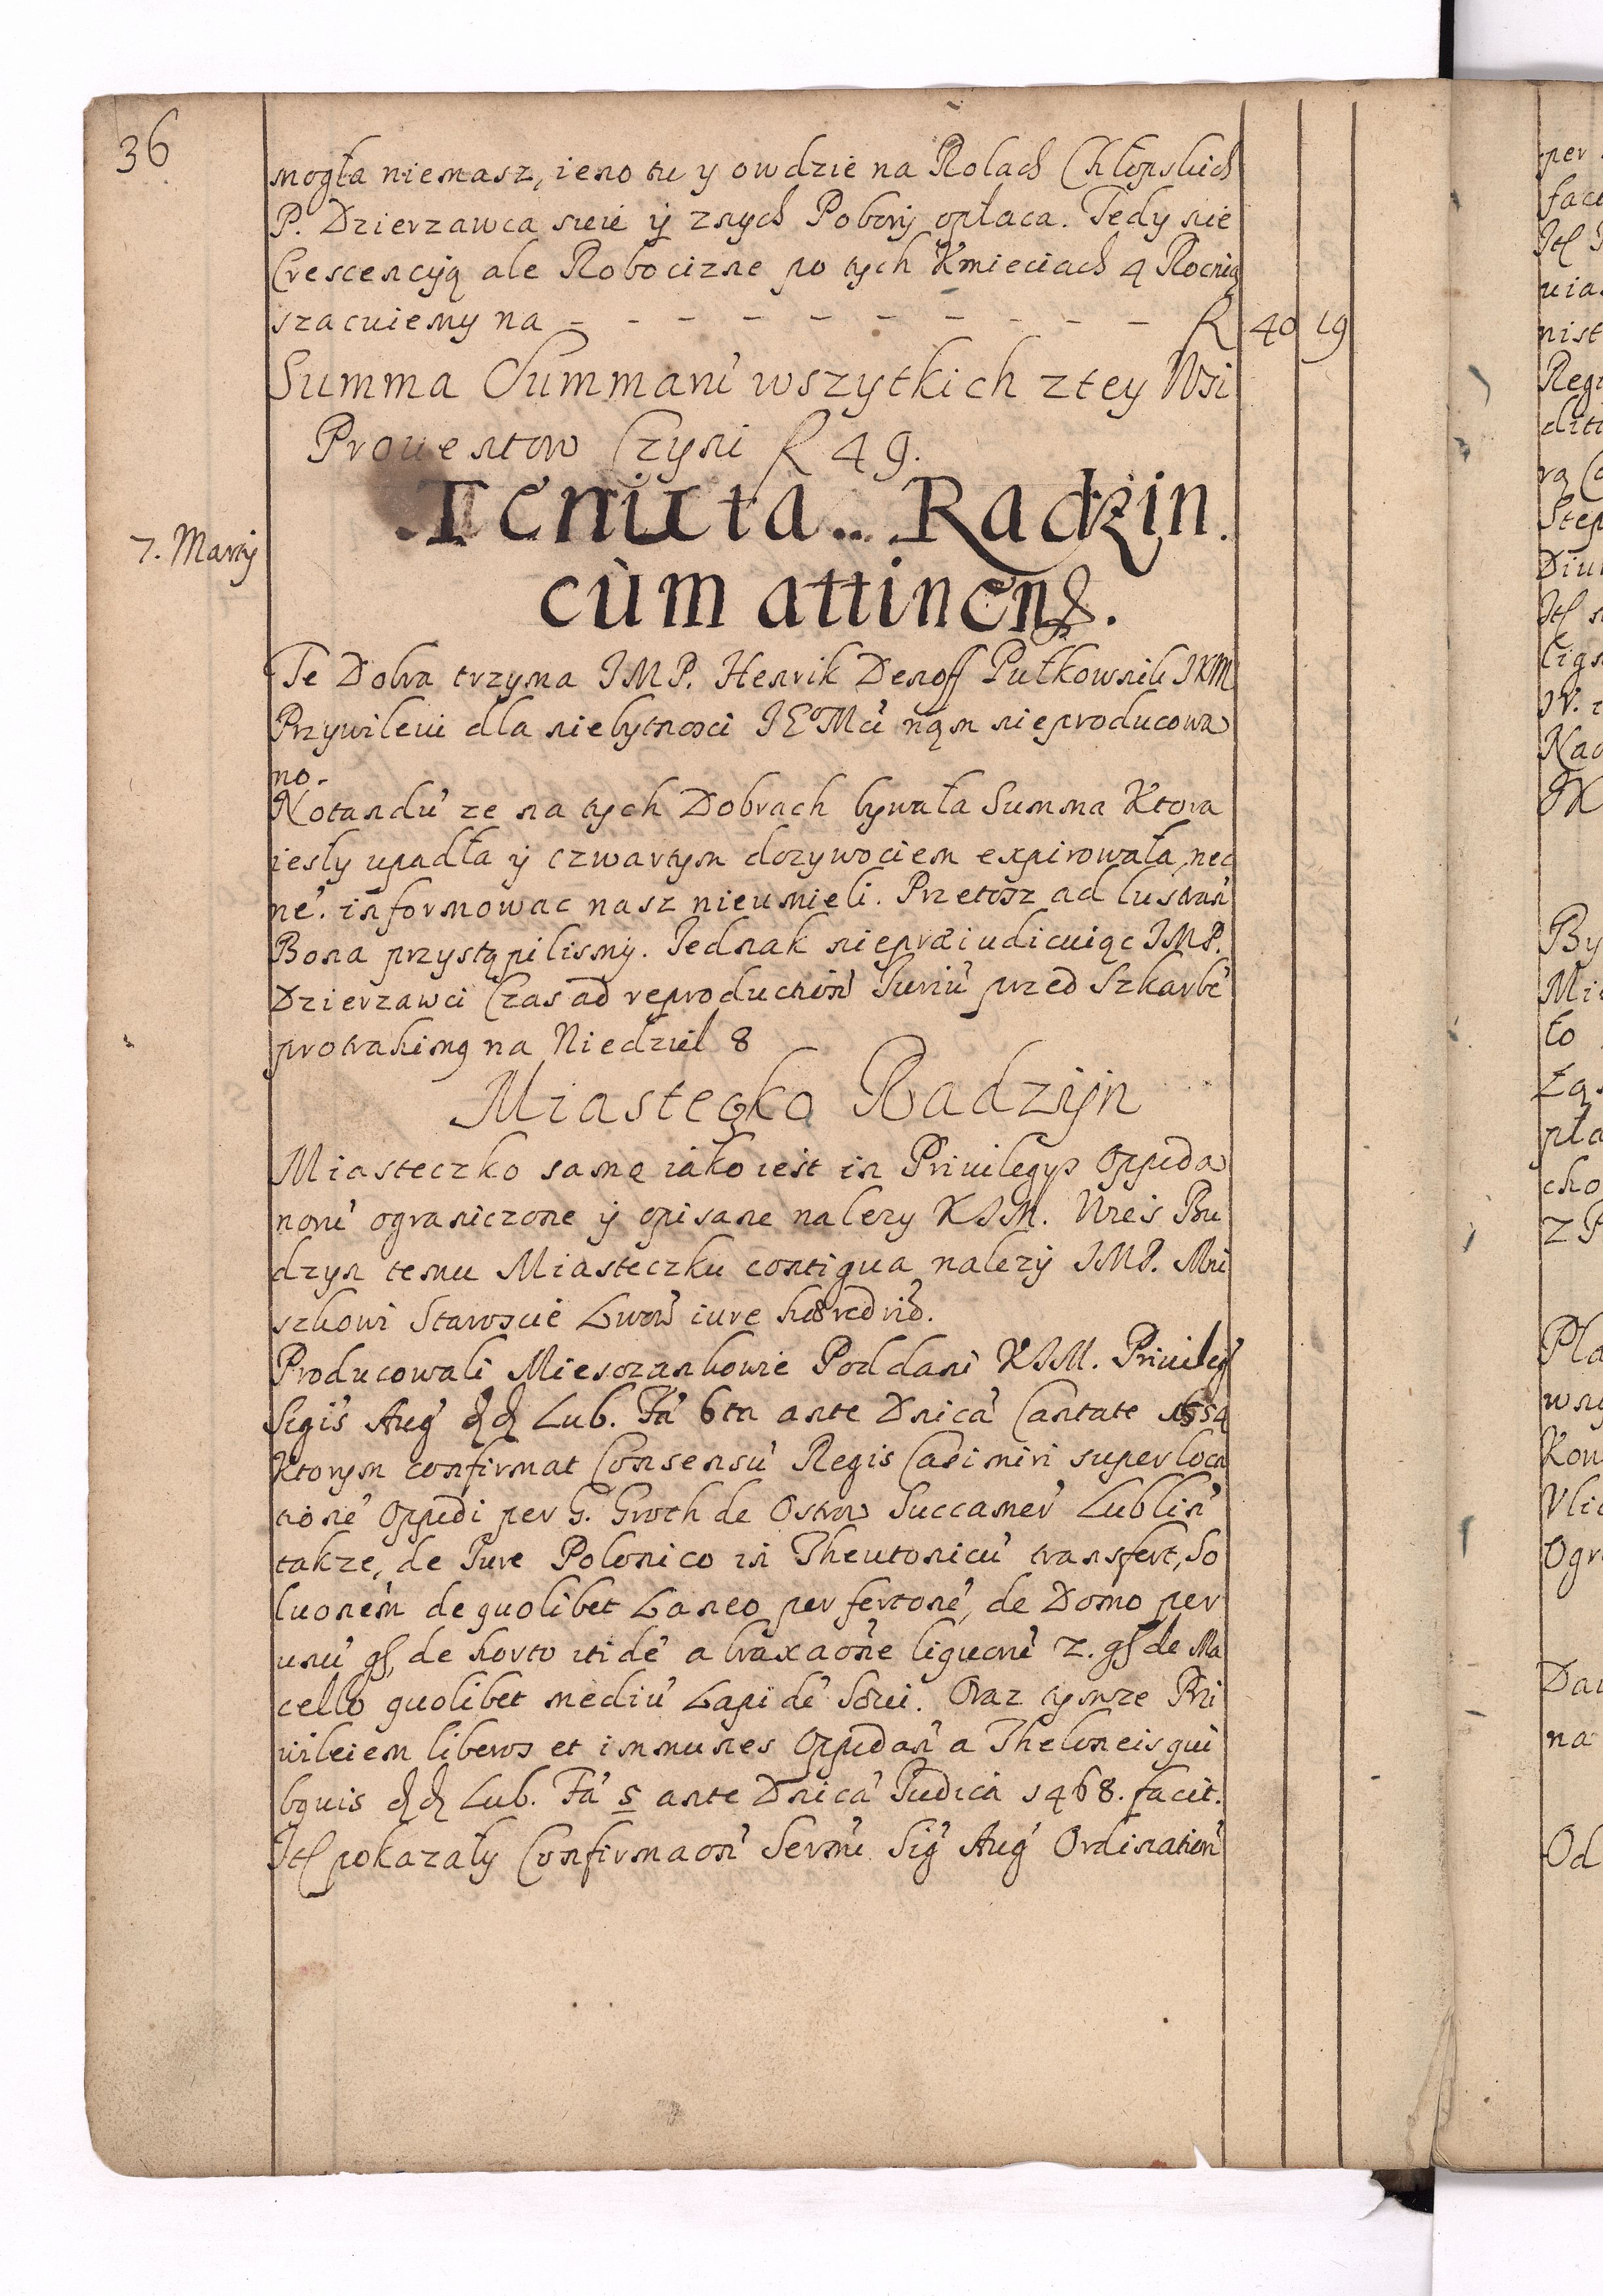 36
mogła niemasz, ieno tu y owdzie na Rolach Chłopskich
P. Dzierzawca sieie ÿ znych Poborÿ opłaca. Tedy nie
Crescencÿą ale Robocizne po tych Kmieciach 4 Rocnią
szacuiemy na - - - - - - - - - - - R 40 19
Summa Summarū wszytkich ztey Wsi
Prouentow Czyni R 49.
7. Martÿ
Tenuta Radzin.
cùm attinen.
Te Dobra trzyma IMP. Henrik Denoff Pułkownik IKM
Przywileiu dla niebytnosci IEoMci nąm nieproducowa
no.
Notandū ze na tych Dobrach bywała Summa Ktora
iesly upadła ÿ czwartym dozywociem expirowała, nec
ne. informowac nasz nieumieli. Przetosz ad lustran
Bona przystąpilismy. Iednak niepræiudicuiąc IMP.
Dzierzawci Czas ad reproduction Iuriū przed Szkarbē
protrahimg na Niedziel 8
Miasteczko Radzijn
Miasteczko samo iako iest in Priuilegys Oppida
norū ograniczone ÿ opisane nalezy KIM. Wies Bu
dzyn temu Miasteczku contigua nalezÿ IMP. Mni
szkowi Staroscie Lwow iure hæredrio.
Producowali Miesczankowie Poddani KIM. Priuileg
Sigis Aug dd Lub. Fa 6ta ante Dnicā Cantate 1554
Ktorym confirmat Consensū Regis Casimiri super loca
tionē Oppidi per G. Groth de Ostrow Succamer Lublin
takze, de Iure Polonico in Theutonicū transfert, So
luonem de quolibet Laneo per fertonē, de Domo per
unū gs, de horto itidē a braxaone liguonū 2. gs de Ma
cello quolibet mediū Lapidē Sœui. Oraz tymze Pri
uileiem liberos et immunes Oppidan a Theloneis qui
bquis dd Lub. Fa 5 ante Dnicā Iudica 1468. facit.
Itl pokazały Confirmaon Sermi Sig Aug Ordination